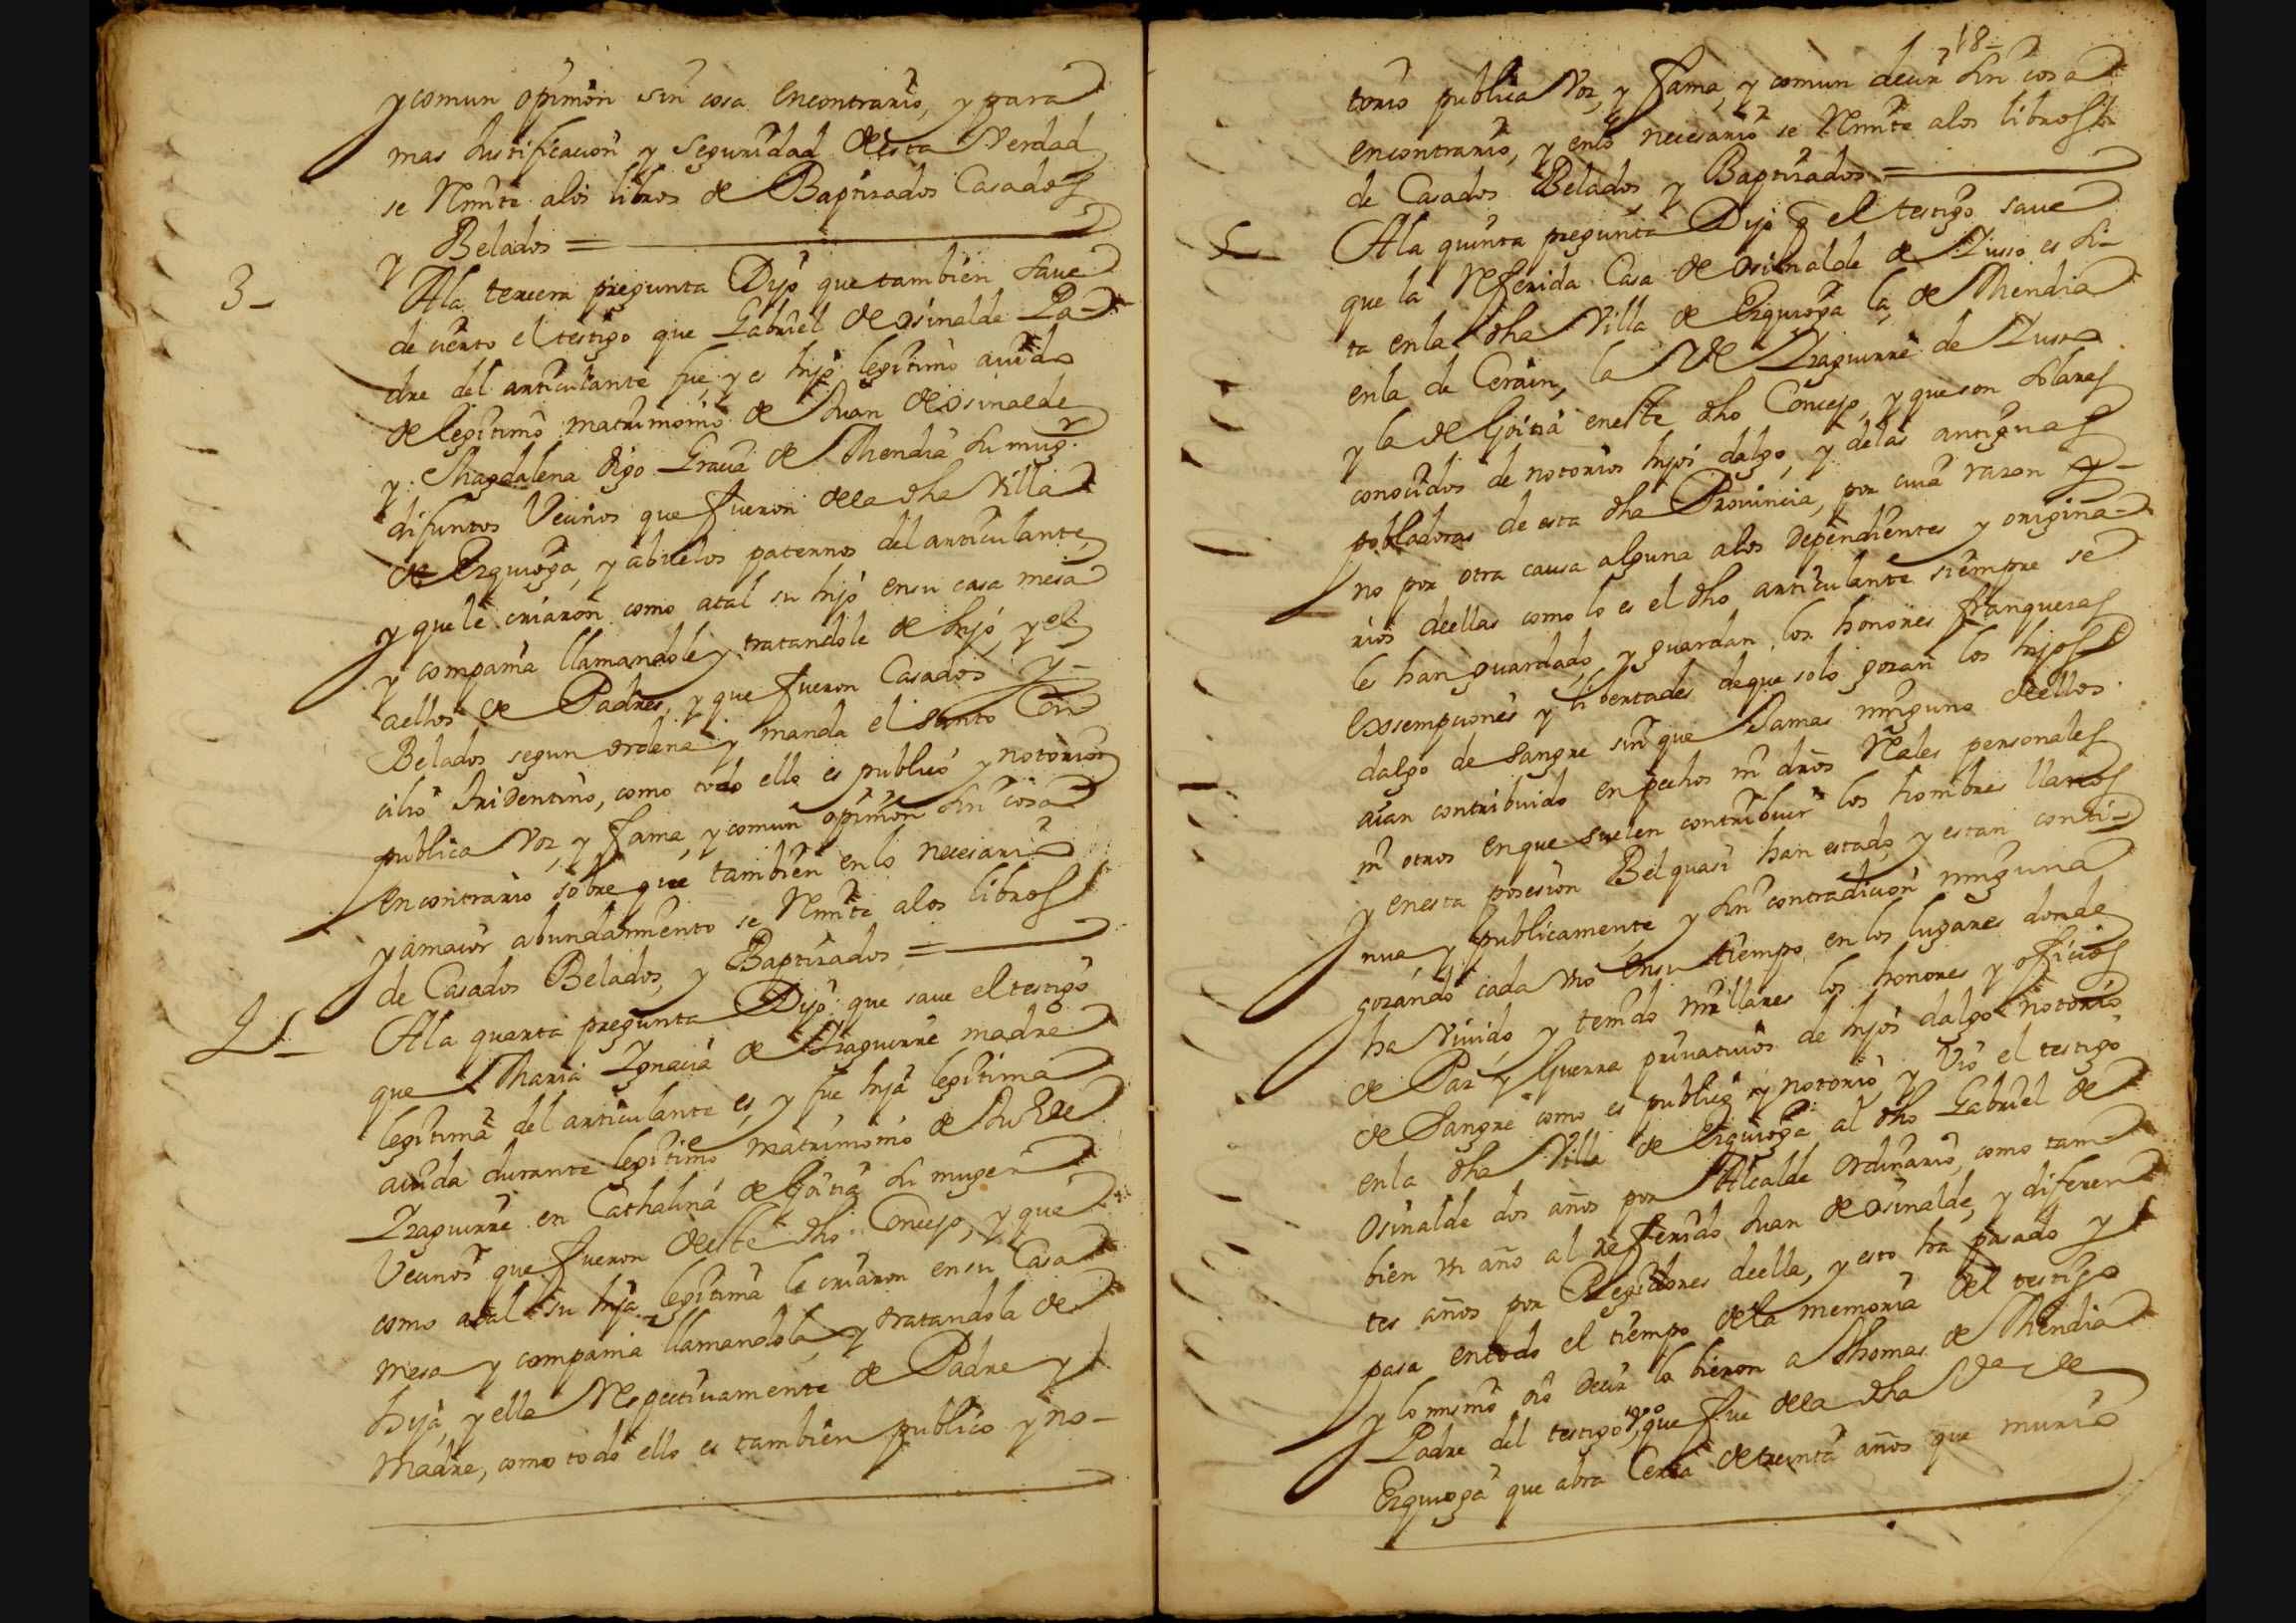 y comun opinion sin cosa encontrario, y para
mas Justificacion y Seguridad desta Verdad
se Rmite alos libros de Baptizados Casados
y Belados =
3_ Ala tercera pregunta Dijo que tambien save
de cierto el testigo que Gabriel de Osinalde Pa-
dre del articulante fue, y es hijo legitimo auido
de legitimo matrimonio de Juan de Osinalde
y Magdalena digo Gracia de Mendia su mugr.
difuntos Vecinos que fueron dela dha Villa
de Ezquioga, y abuelos paternos del articulante,
y que le criaron como atal su hijo ensu casa mesa
y compania llamandole y tratandole de hijo, y el
aellos de Padres, y que fueron Casados y-
Belados segun ordena y manda el santo Con
cilio Tridentino, como todo ello es publico y notorio
publica Voz, y fama, y comun opinion sin cosa
encontrario sobre que tambien en lo necesario
y amaior abundamiento se Rmite alos libros
de Casados Belados, y Baptizados =
4_ Ala quarta pregunta Dijo que save el testigo
que Maria Ignacia de Yzaguirre madre
legitima del articulante es, y fue hija legitima
auida durante legitimo matrimonio de de
Yzaguirre en Cathalina de Goitia su muger
Vecinos que fueron deste dho Concejo, y que
como atal su hija legitima le criaron en su Casa
mesa y compania llamandola, y tratandola de
hija, y ella Respectiuamente de Padre y
Madre, como todo ello es tambien publico y no-
18_
torio publica Voz, y fama, y comun decir sin cosa
encontrario, y enlo necesario se Rmite alos libros
de Casados Belados, y Baptizados =
5_ Ala quinta pregunta Dijo q el testigo save
que la Referida Casa de Osinalde de Yuso es si-
ta enla dha Villa de Ezquioga, la de Mendia
enla de Cerain, la de Yzaguirre de Yuso
y la de Goitia eneste dho Concejo, y que son solares
conocidos de notorios hijos dalgo, y delas antiguas
pobladoras de esta dha Prouincia, por cuia razon y-
no por otra causa alguna alos dependientes y origina-
rios deellas como lo es el dho articulante siempre se
les han guardado, y guardan los honores franquezas
exsempciones y libertades deque solo gozan los hijos
dalgo de sangre sin que Jamas ninguno deellos
aian contribuido en pechos ni dros Rales personales
ni otros enque suelen contribuir los hombres llanos
y enesta posesion Belquasi han estado, y estan conti-
nua y publicamente y sin contradicion ninguna
gozando cada vno ensu tiempo, en los lugares donde
ha Viuido, y tenido millares los honores y oficios
de Paz y Guerra priuatiuos de hijos dalgo notorios
de Sangre como es publico y notorio, y Vio el testigo
enla dha Villa de Ezquioga al dho Gabriel de
Osinalde dos años por Alcalde Ordinario, como tam-
bien vn año al referido Juan de Osinalde, y diferen
tes años por Regidores deella, y esto ha pasado y
pasa entodo el tiempo dela memoria del testigo
y lo mismo oio decir lo bieron a Thomas de Mendia
Padre del testigo, vzo que fue dela dha Va de
Ezquioga que abra Cerca detreinta años que murio